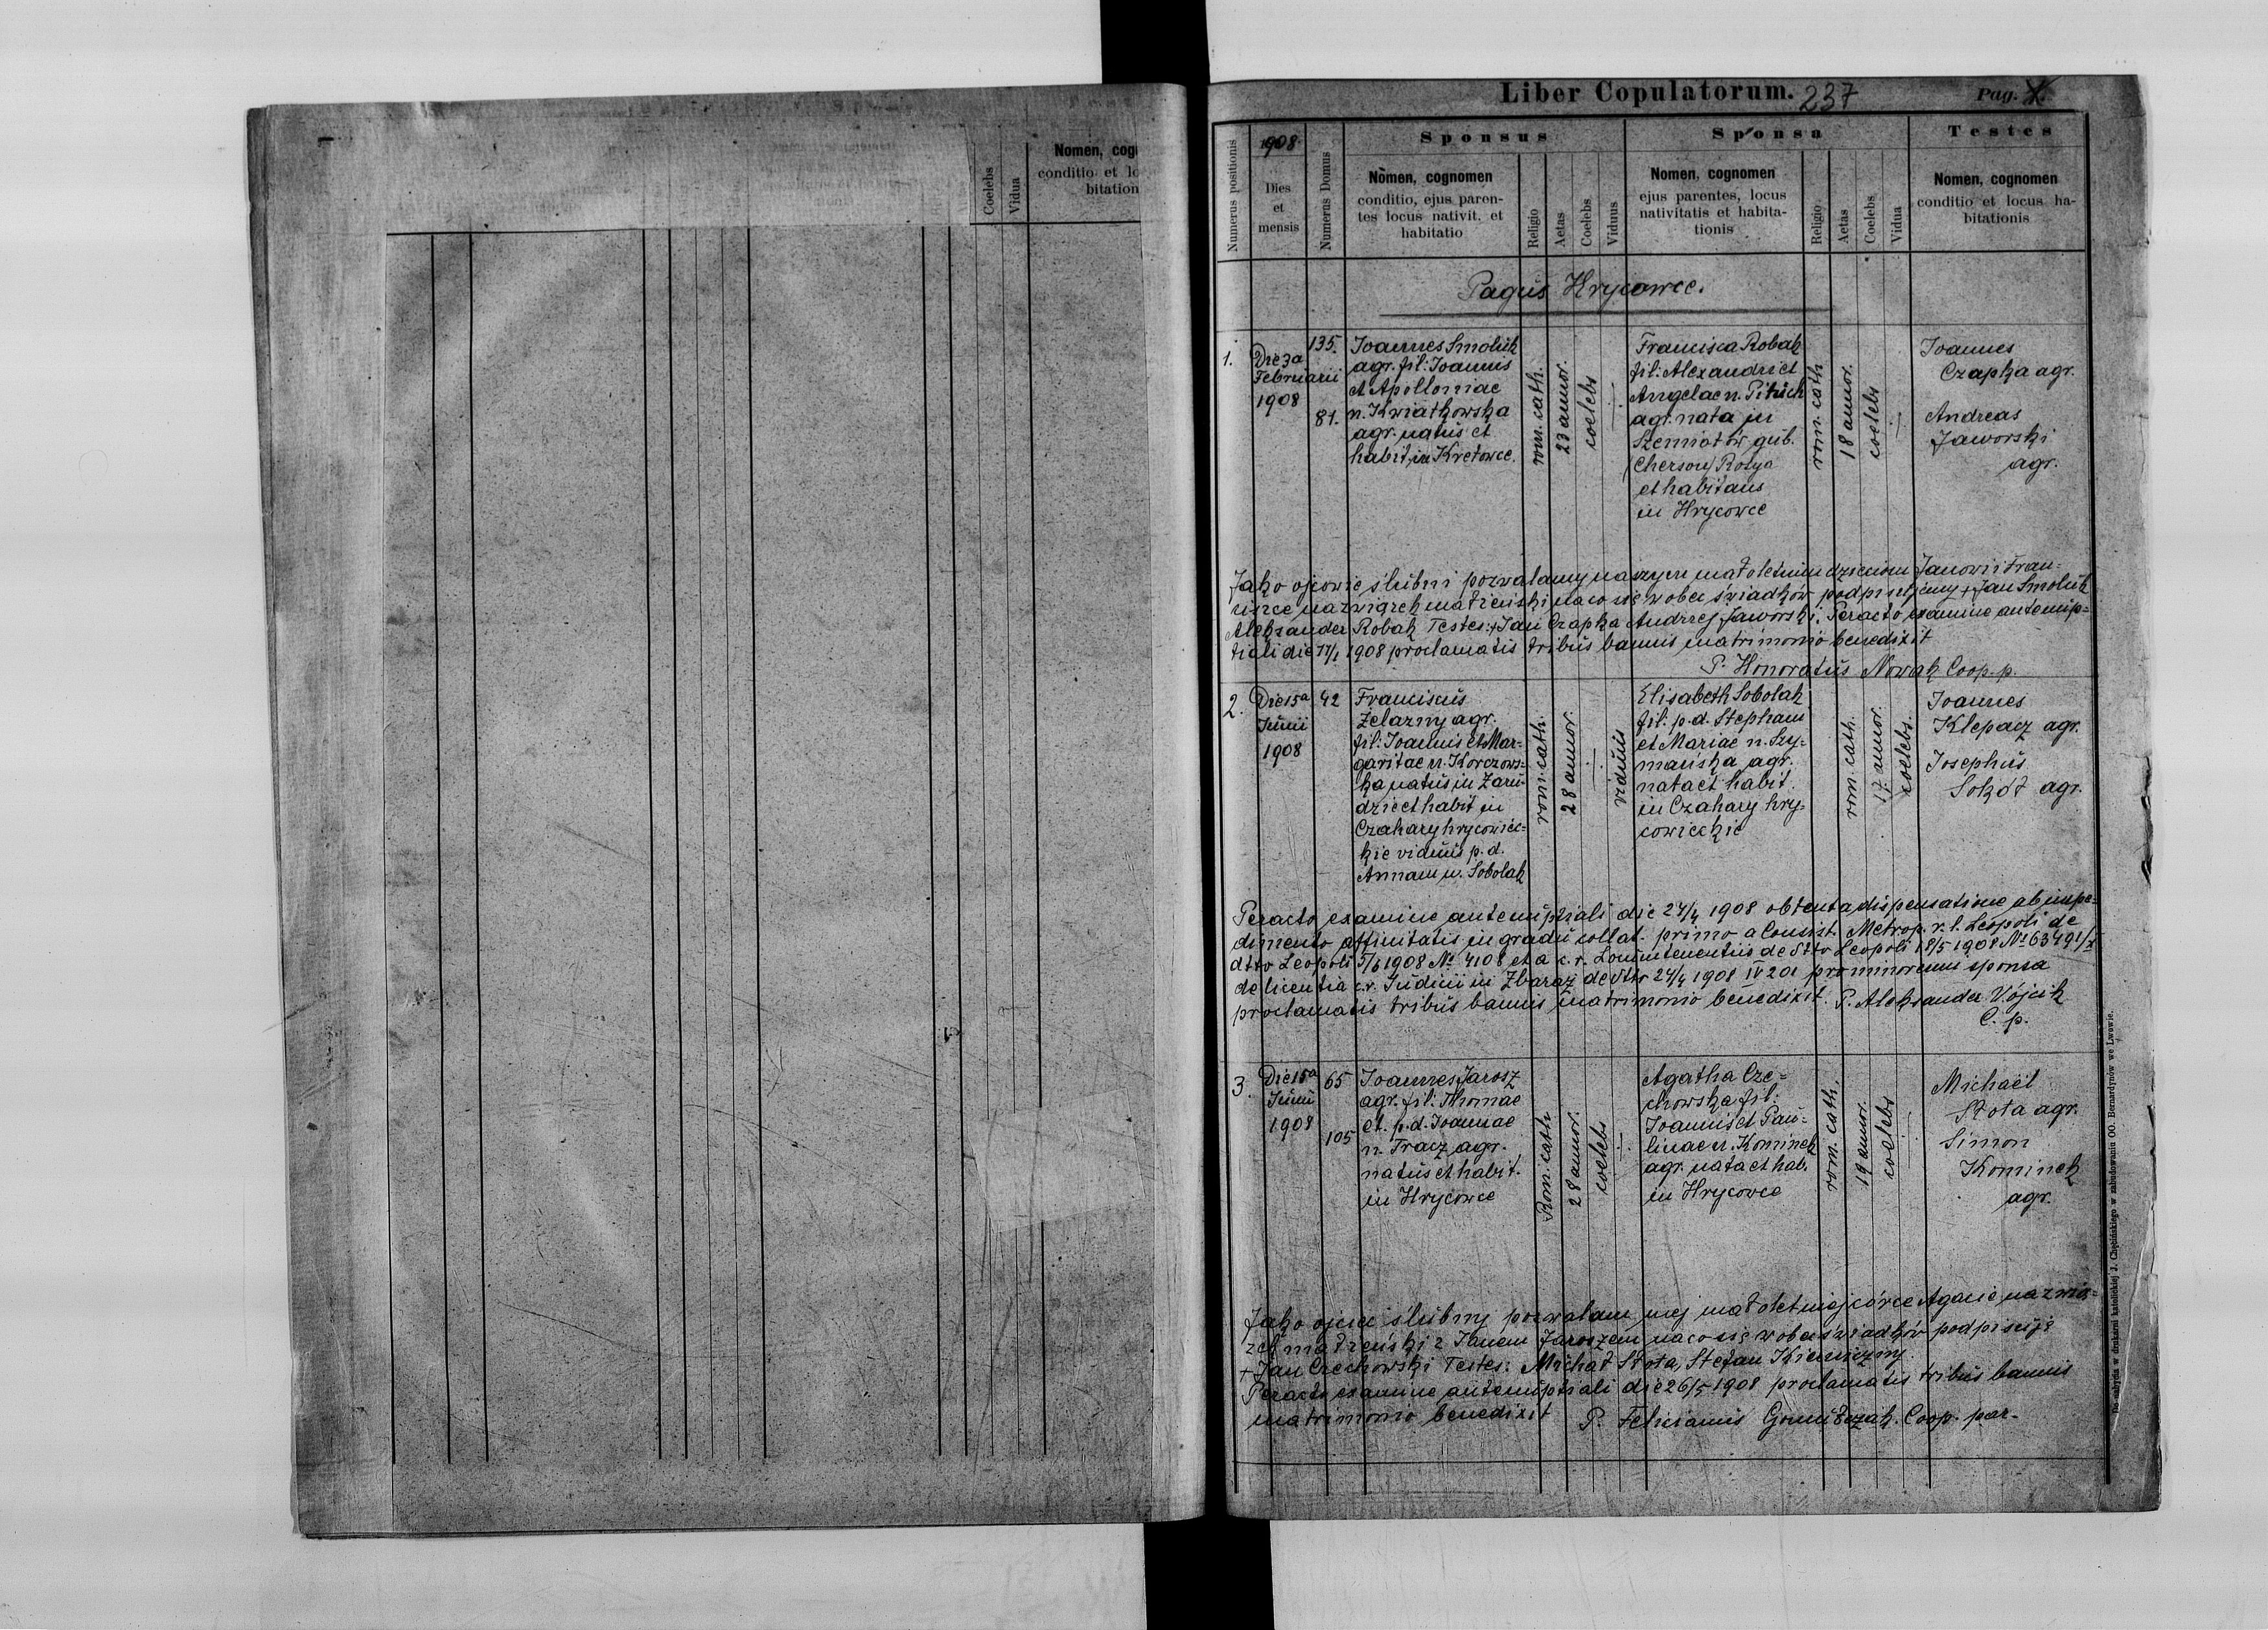 Nomen, cog
conditio et lo
bitation
Coelebs
Vidua
Liber Copulatorum. 237
Pag.
Numerus positionis
1908.
Dies
et
mensis
Numerus Domus
Sponsus
Nomen, cognomen
conditio, ejus paren-
tes locus nativit. et
habitatio
Religio
Aetas
Coelebs
Viduus
Sponsa
Nomen, cognomen
ejus parentes, locus
nativitatis et habita-
tionis
Religio
Aetas
Coelebs
Vidua
Testes
Nomen, cognomen
conditio et locus ha-
bitationis
Pagus Hrycowce.
1.
Die 3a
Februarii
1908
135.
81.
Joannes Smoluk
agr. fil: Joannis
et Apolloniae
n. Kwiatkowska
agr. natus et
habit. in Kretowce.
rom. cath.
23 annor.
coelebs
Francisca Robak
fil: Alexandri et
Angelae n.
agr. nata in
gub.
(Cherson) Rosya
et habitans
in Hrycowce
rom. cath
18 annor.
coelebs
Joannes
Czapka agr.
Andreas
Jaworski
agr.
Jako ojcowie ślubni pozwalamy naszym małoletnim dzieciom Janowi i Fran-
cisce na związek małżeński na co się wobec świadków podpisujemy + Jan Smoluk
Aleksander Robak Testes: + Jan Czapka Andrzej Jaworski. Peracto examine antenup-
tiali die 1908 proclamatis tribus bannis matrimonio benedixit
P. Honoratus Nowak Coop. p.
2.
Die 15a
Junii
1908
42
Franciscus
Żelazny agr.
fil: Joannis et Mar-
garitae n. Korczows-
ka natus in Zaru-
dzie et habit in
Czahary hrycowiec-
kie viduus p. d.
Annam n. Sobolak
rom. cath.
28 annor.
viduus
Elisabeth Sobolak
fil: p. d. Stephani
et Mariae n. Szy-
mańska agr.
nata et habit.
in Czahary hry-
cowieckie
rom. cath.
17 annor.
coelebs.
Joannes
Klepacz agr.
Josephus
Sokół agr.
Peracto examine antenuptiali die 24/4 1908 obtenta dispensatione ab impe-
dimento affinitatis in gradu collat. primo a Consist. Metrop. r. l. Leopoli de
dtto Leopoli 5/6 1908 No 4108 et a c. r. Locumtenentiis de dtto Leopoli 18/5 1908 No
de licentia c. r. Judicii in Zbaraż de dtto 24/4 1908 IV 201 pro minorenni sponsa
proclamatis tribus bannis matrimonio benedixit. P. Aleksander Wójcik
C. p.
3
Die 15a
Junii
1908
65
105
Joannes Jarosz
agr. fil: Thomae
et. p. d. Joannae
n. Tracz agr.
natus et habit.
in Hrycowce
Rom. cath
28 annor.
coelebs
Agatha Cze-
chowska fil:
Joannis et Pau-
linae n. Kominek
agr. nata et hab.
in Hrycowce
rom. cath.
19 annor.
coelebs
Michaël
Słota agr.
Simon
Kominek
agr.
Jako ojciec ślubny pozwalam mej małoletniej córce Agacie na zwią-
zek małżeński z Janem Jaroszem na co się wobec świadków podpisuję
+ Jan Czechowski Testes: Michał Słota, Stefan
Peracto examine antenuptiali die 26/5 1908 proclamatis tribus bannis
matrimonio benedixit P. Felicianus Coop. par.
Do nabycia w drukarni katolickiej J. Chęcińskiego w zabudowaniu OO. Bernardynów we Lwowie.